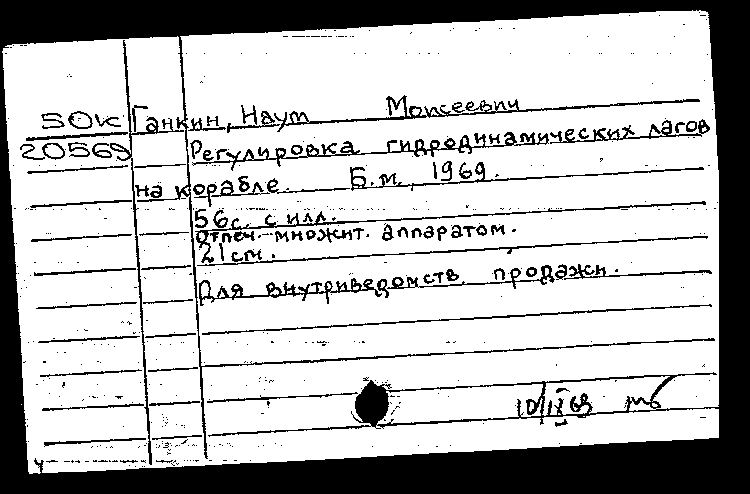 50к Ганкин, Наум Моисеевич
20569 Регулировка гидродинамических лагов
на корабле. Б.м., 1969.
56с. с илл.
отпеч. множит. аппаратом.
21см.
Для внутриведомств. продажи.
10/IX 69